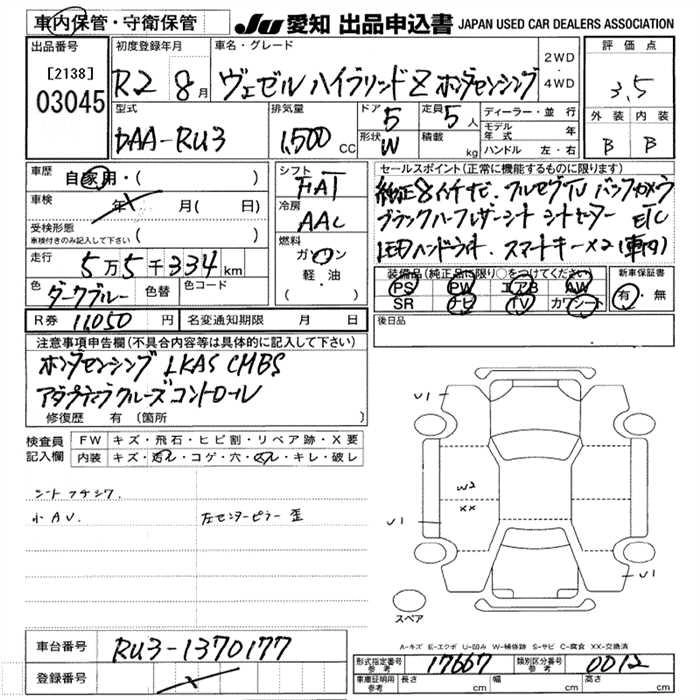 車内保管・守衛保管
JU 愛知 出品申込書 JAPAN USED CAR DEALERS ASSOCIATION
出品番号
[2138]
03045
初度登録年月
R2 8月
車名・グレード
ヴェゼル ハイブリッド Z ホンダセンシング
2WD
・
4WD
評価点
3.5
外装 内装
B B
型式
DAA-RU3
排気量
1,500 CC
ドア 5
形状 W
定員 5 人
積載 kg
ディーラー・並行
モデル年式 年
ハンドル 左・右
車歴 自家用・( )
車検 年 月( 日)
受検形態
車検付きのみ記入して下さい ( )
走行 5万5千334km
色 ダークブルー 色替 色コード
シフト
FAT
冷房
AAC
燃料
ガソリン
軽・油
( )
セールスポイント(正常に機能するものに限ります)
純正8インチナビ、フルセグTV バックカメラ
ブラックハーフレザーシート シートヒーター ETC
LEDヘッドライト、スマートキー×2(車内)
装備品(純正品に限り○をつけてください)
PS PW エアB AW
SR ナビ TV カワシート
新車保証書
有・無
R券 11,050 円 名変通知期限 月 日
後日品
注意事項申告欄(不具合内容等は具体的に記入して下さい)
ホンダセンシング LKAS CMBS
アダプティブクルーズコントロール
修復歴 有 〔箇所 〕
検査員
記入欄
FW キズ・飛石・ヒビ割・リペア跡・X要
内装 キズ・汚レ・コゲ・穴・スレ・キレ・破レ
シートフチシワ
小AV. 左センターピラー歪
U1
W2
XX
U1
U1
スペア
A-キズ E-エクボ U-凹み W-補修跡 S-サビ C-腐食 XX-交換済
車台番号 RU3-1370177
登録番号
形式指定番号
参考 17667
類別区分番号
参考 0012
車庫証明用
参考 長さ cm 幅 cm 高さ cm